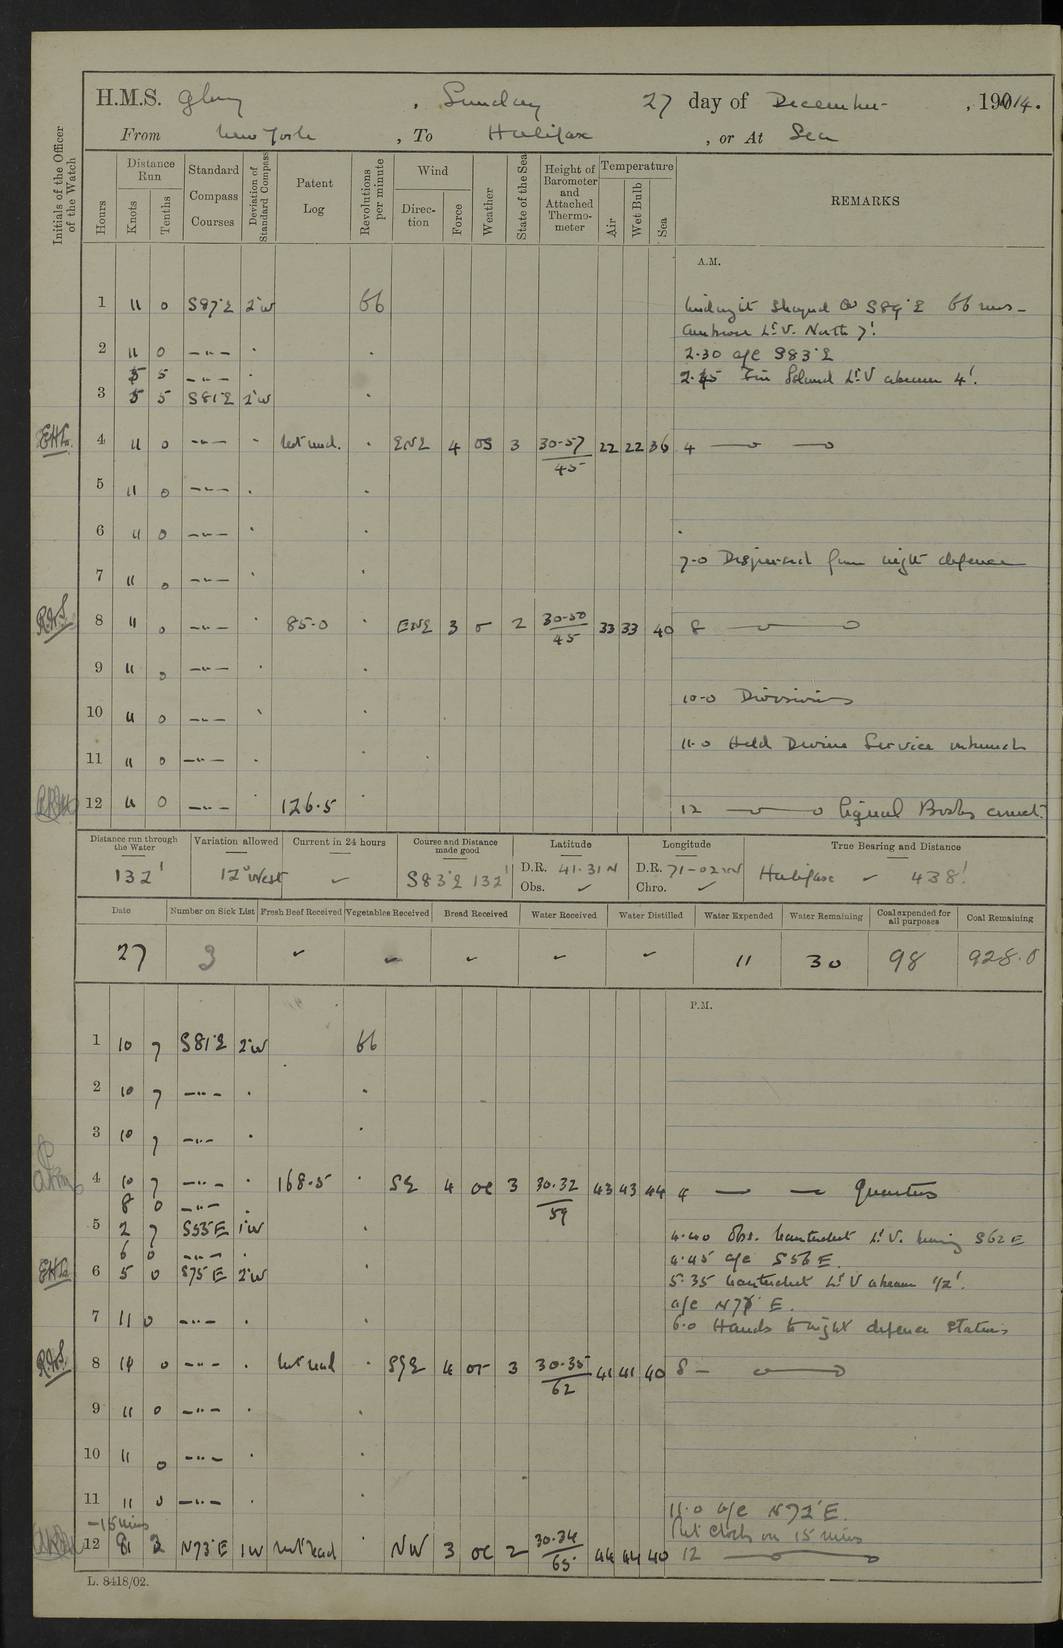 H.M.S. Glory , Sunday 27 day of December , 1914.
From New York , To Halifax , or At Sea
Initials of the Officer of the Watch
Hours
Distance Run
Knots
Tenths
Standard Compass Courses
Deviation of Standard Compass
Patent Log
Revolutions per minute
Wind
Direction
Force
Weather
State of the Sea
Height of Barometer and Attached Thermometer
Temperature
Air
Wet Bulb
Sea
REMARKS
A.M.
1 11 0 S87°E 2°W 66 Midnight Shaped Co S89°E 66 revs
Ambrose Lt. V. North 7'
2 11 0 2.30 a/c S83°E
5 5 2.45 Fire Island Lt V abeam 4'.
3 5 5 S81°E 2°W
EHL. 4 11 0 not read. ENE 4 os 3 30.57 45 22 22 36 4
5 11 0
6 11 0
7.0 Dispersed from night defence
7 11 0
8 11 0 85.0 ENE 3 o 2 30.50 45 33 33 40 8
9 11 0
10.0 Divisions
10 11 0
11.0 Held Divine Service
11 11 0
12 11 0 126.5 12 Signal Books correct.
Distance run through the Water 132'
Variation allowed 12° West
Current in 24 hours
Course and Distance made good S83°E 132'
Latitude D.R. 41.31 N Obs.
Longitude D.R. 71-02 W Chro.
True Bearing and Distance Halifax 438'.
Date Number on Sick List Fresh Beef Received Vegetables Received Bread Received Water Received Water Distilled Water Expended Water Remaining Coal expended for all purposes Coal Remaining
27 3 11 30 98 928.0
P.M.
1 10 7 S81°E 2°W 66
2 10 7
3 10 7
4 10 7 168.5 SE 4 oc 3 30.32 59 43 43 44 4 Quarters
8 0
5 2 7 S55E 1°W 4.40 Obs. Nantucket Lt. V. bearing S62E
6 0 4.45 a/c S56E.
EHL 6 5 0 S75E 2°W 5.35 Nantucket Lt V abeam 1/2'.
a/c N77°E.
7 11 0 6.0 Hands to night defence stations
8 11 0 not read 4 3 30.35 62 41 41 40 8
9 11 0
10 11 0
11 11 0 11.0 a/c N72°E.
-15 mins Put Clocks on 15 mins
12 8 2 N73°E 1W not read NW 3 oc 2 30.34 65 44 44 40 12
L. 8418/02.